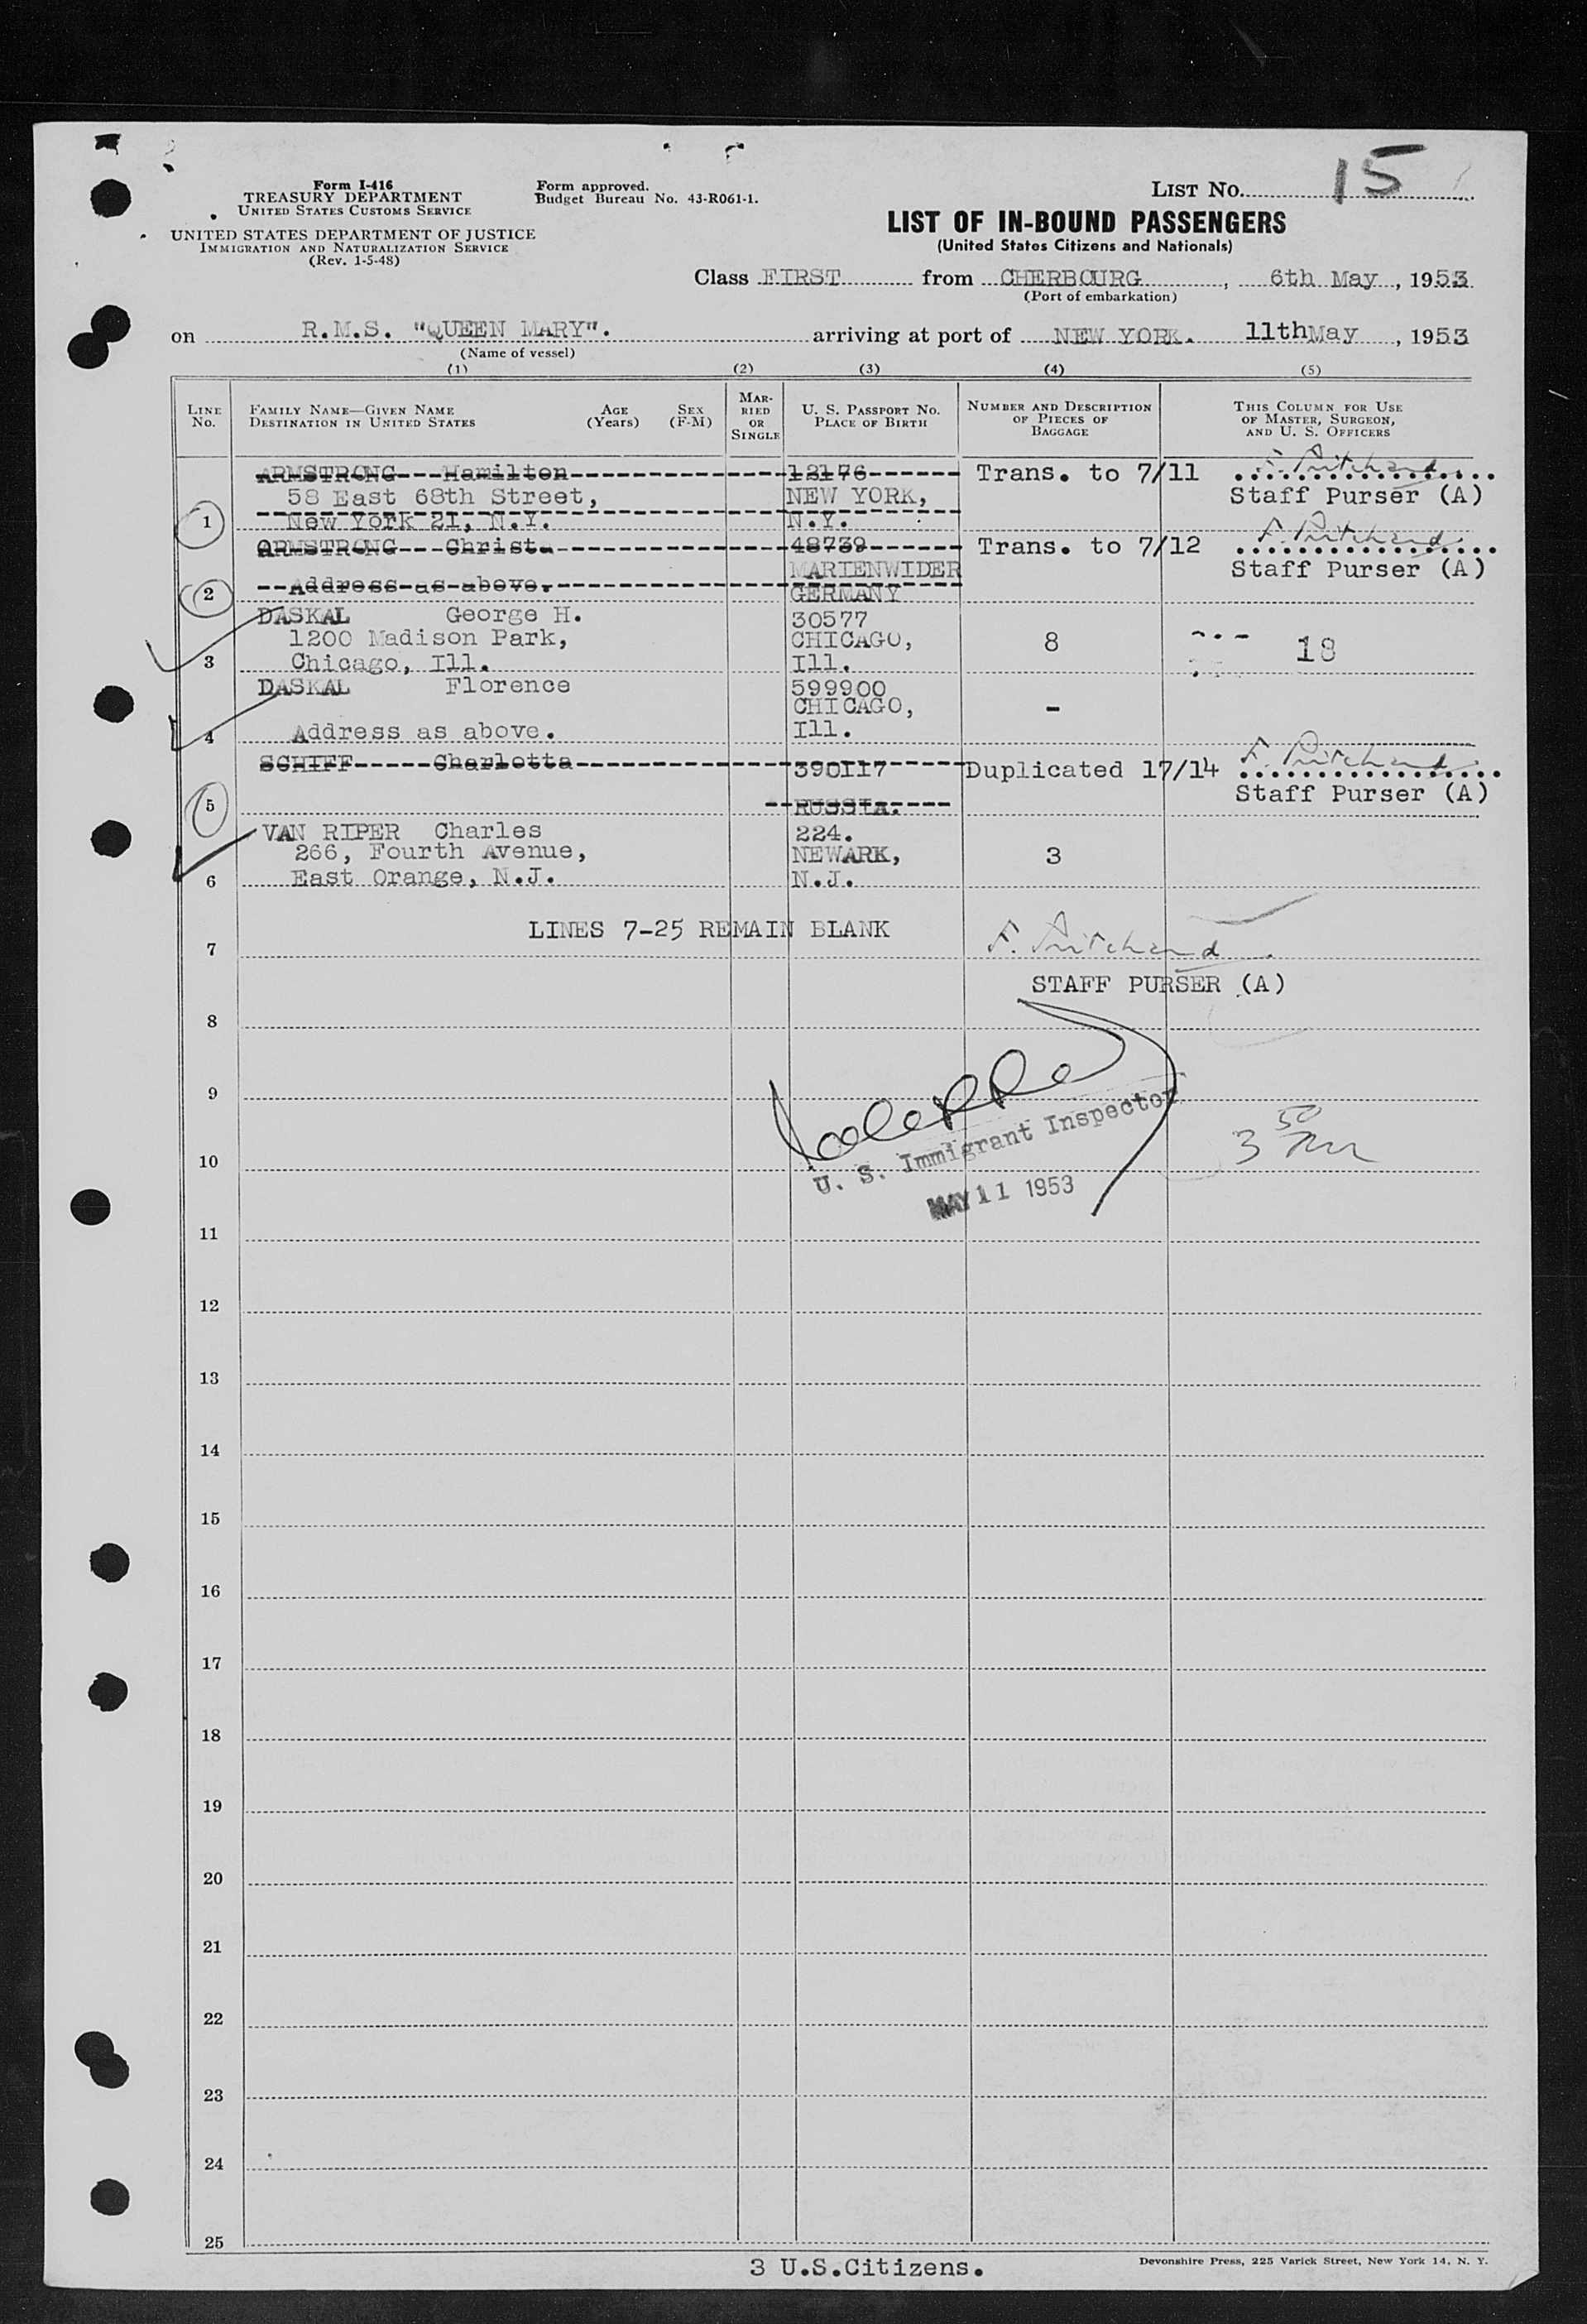 LIST NO. 15
Form I-416
TREASURY DEPARTMENT
UNITED STATES CUSTOMS SERVICE
UNITED STATES DEPARTMENT OF JUSTICE
IMMIGRATION AND NATURALIZATION SERVICE
(Rev. 1-5-48)
Form approved.
Budget Bureau No. 43-R061-1.
LIST OF IN-BOUND PASSENGERS
(United States Citizens and Nationals)
Class FIRST from CHERBOURG, 6th May, 1953
(Port of embarkation)
on R.M.S. "QUEEN MARY". arriving at port of NEW YORK. 11th May, 1953
(Name of vessel)
(1) (2) (3) (4) (5)
LINE No. FAMILY NAME—GIVEN NAME DESTINATION IN UNITED STATES AGE (Years) SEX (F-M) MARRIED OR SINGLE U. S. PASSPORT NO. PLACE OF BIRTH NUMBER AND DESCRIPTION OF PIECES OF BAGGAGE THIS COLUMN FOR USE OF MASTER, SURGEON, AND U. S. OFFICERS
ARMSTRONG---Hamilton 12176 Trans. to 7/11 F. Pritchard
58 East 68th Street, NEW YORK, Staff Purser (A)
1 New York 21, N.Y. N.Y.
ARMSTRONG---Christa 48739 Trans. to 7/12 F. Pritchard
MARIENWIDER Staff Purser (A)
2 --Address-as-above. GERMANY
DASKAL George H. 30577
1200 Madison Park, CHICAGO, 8 18
3 Chicago, Ill. Ill.
DASKAL Florence 599900
CHICAGO, -
4 Address as above. Ill.
SCHIFF-----Charlotta 390117 Duplicated 17/14 F. Pritchard
Staff Purser (A)
5 RUSSIA.
VAN RIPER Charles 224.
266, Fourth Avenue, NEWARK, 3
6 East Orange, N.J. N.J.
LINES 7-25 REMAIN BLANK F. Pritchard
7
STAFF PURSER (A)
8
9
U. S. Immigrant Inspector
3 50
10
MAY 11 1953
11
12
13
14
15
16
17
18
19
20
21
22
23
24
25
3 U.S.Citizens.
Devonshire Press, 225 Varick Street, New York 14, N. Y.